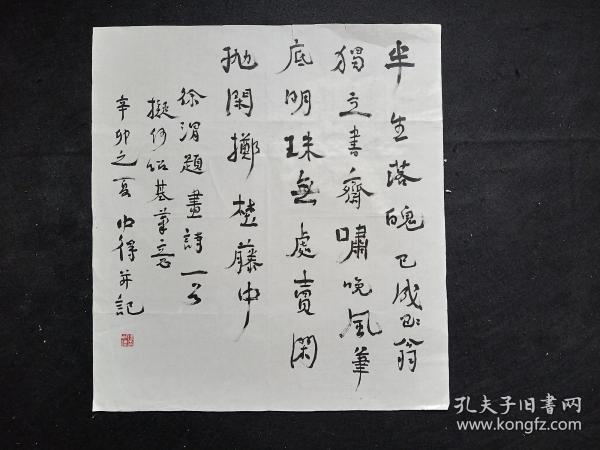 半生落魄已成翁
独立書齋嘯晚風筆
底明珠無處賣閑
抛閑擲野藤中
徐渭題畫詩一首
擬何紹基筆意
辛卯之夏得并記
孔夫子旧書网
www.kongfz.com